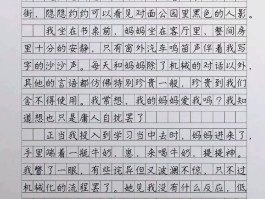 街，隐隐约约可以看见对面公园里黑色的人影。
我坐在书桌前，妈妈坐在客厅里，整间房
里十分的安静，只有窗外汽车鸣笛声伴着我写
字的沙沙声。每天和妈妈除了机械的对话以外，
其他的言语都仿佛特别珍贵一般，珍贵到我们
舍不得使用。我常想，我的妈妈爱我吗？我知
道想也只是庸人自扰罢了
正当我投入到学习当中去时，妈妈进来了，
手里端着一瓶牛奶，“崽，来喝牛奶，提提神。”
我瞥了一眼，有些诧异但又波澜不惊，只不过
机械化的流程罢了。她见我没有什么反应，低